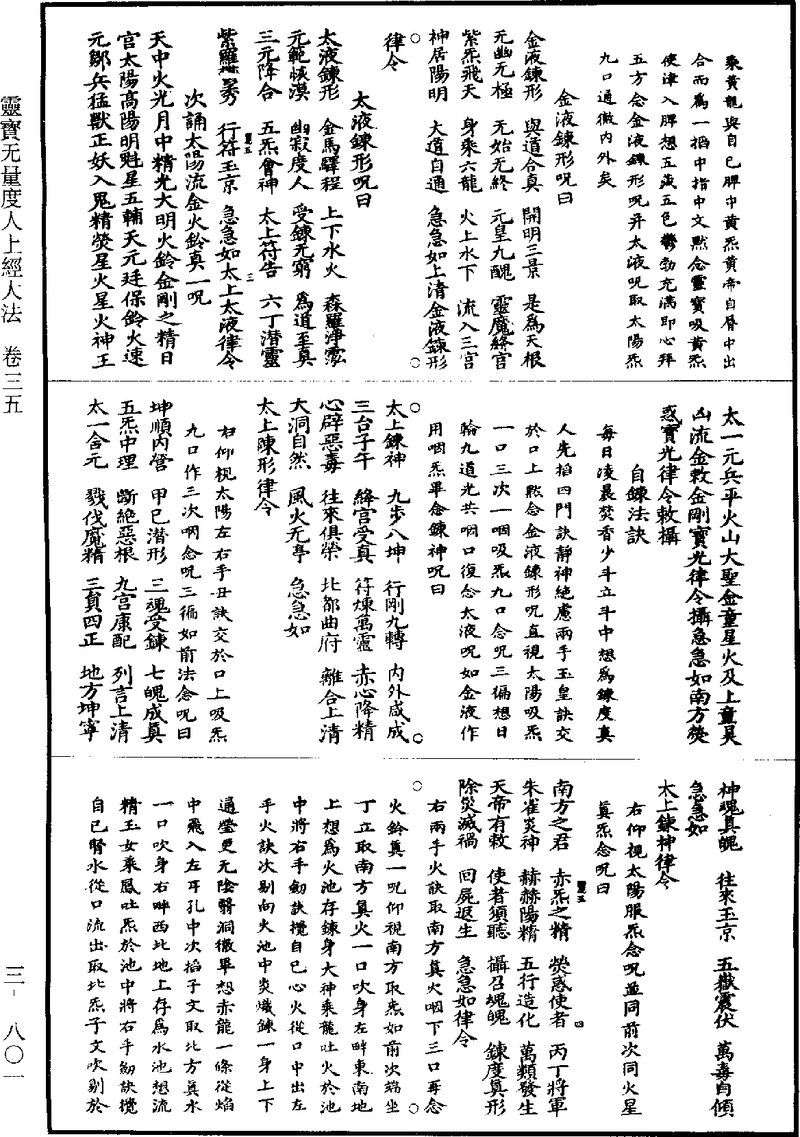 乘黃龍與自己脾中黃炁黃帝自唇中出
合而爲一搯中指中文㸃念靈寳吸黃炁
使津入脾想五藏五色欝勃充滿即心拜
五方念金液鍊形呪并太液呪取太陽炁
九口通徹内外矣
金液鍊形呪曰
金液鍊形　與道合真　開明三景　是爲天根
无幽无極　无始无終　元皇九醜　靈魔絳宫
紫炁飛天　身乘六龍　火上水下　流入三宫
神居陽明　大道自通　急急如上清金液鍊形
律令
太液鍊形呪曰
太液鍊形　金馬驛程　上下水火　森羅淨
元範恢漠　幽寂度人　受鍊无窮　爲道至真
三元降合　五炁會神　太上符告　六丁潜靈
紫羅　秀　行符玉京　急急如太上太液律令
次誦太陽流金火鈴真一呪
天中火光月中精光大明火鈴金剛之精日
宫太陽髙陽明魁星五輔天元廷保鈴火速
元鄒兵猛獸正妖入鬼精熒星火星火神王
太一元兵平火山大聖金童星火及上童昊
凶流金敕金剛寳光律令攝急急如南方熒
惑寳光律令敕攝
自鍊法訣
每日凌晨焚香少斗立斗中想爲鍊度真
人先搯四門訣靜神絶慮兩手玉皇訣交
於口上㸃念金液鍊形呪直視太陽吸炁
一口三次一咽吸炁九口念呪三徧想日
輪九道光共咽口復念太液呪如金液作
用咽炁畢念鍊神呪曰
太上鍊神　九步八坤　行剛九轉　内外咸成
三台子午　絳宫受真　符煉萬靈　赤心降精
心辟惡毒　往來俱榮　北都曲府　離合上清
大洞自然　風火无亭　急急如
太上陳形律令
右仰視太陽左右手丑訣交於口上吸炁
九口作三次咽念呪三徧如前法念呪曰
坤順内營　甲已潜形　三魂受鍊　七魄成真
五炁中理　斷絶惡根　九宫康配　列言上清
太一含元　戮伐魔精　三貟四正　地方坤寧
神魂真魄　往來玉京　五嶽震伏　萬毒自傾
急急如
太上鍊神律令
右仰視太陽服炁念呪並同前次同火星
真炁念呪曰
南方之君　赤炁之精　熒惑使者　丙丁將軍
朱雀炎神　赫赫陽精　五行造化　萬類發生
天帝有敕　使者須聽　攝召魂魄　鍊度真形
除災滅禍　回屍返生　急急如律令
右兩手火訣取南方真火咽下三口再念
火鈴真一呪仰視南方取炁如前次端坐
丁立取南方真火一口吹身左畔東南地
上想爲火池存鍊身大神乘龍吐火於池
中將右手劒訣攪自己心火從口中出左
手火訣次剔向火池中炎熾鍊一身上下
通瑩更无陰翳洞徹畢想赤龍一條從焰
中飛入左耳孔中次搯子文取北方真水
一口吹身右畔西北地上存爲水池想流
精玉女乘鳳吐炁於池中將右手劒訣攪
自己腎水從口流出取北炁子文吹剔於
靈寶无量度人上經大法　卷三五
三-八〇一